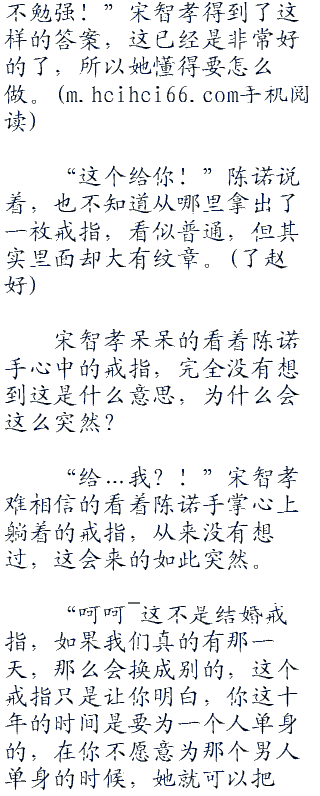 不勉强！”宋智孝得到了这
样的答案，这已经是非常好
的了，所以她懂得要怎么
做。(m.hcihci66.com手机阅
读)
“这个给你！”陈诺说
着，也不知道从哪里拿出了
一枚戒指，看似普通，但其
实里面却大有纹章。(了赵
好)
宋智孝呆呆的看着陈诺
手心中的戒指，完全没有想
到这是什么意思，为什么会
这么突然？
“给…我？！”宋智孝
难相信的看着陈诺手掌心上
躺着的戒指，从来没有想
过，这会来的如此突然。
“呵呵¯这不是结婚戒
指，如果我们真的有那一
天，那么会换成别的，这个
戒指只是让你明白，你这十
年的时间是要为一个人单身
的，在你不愿意为那个男人
单身的时候，她就可以把